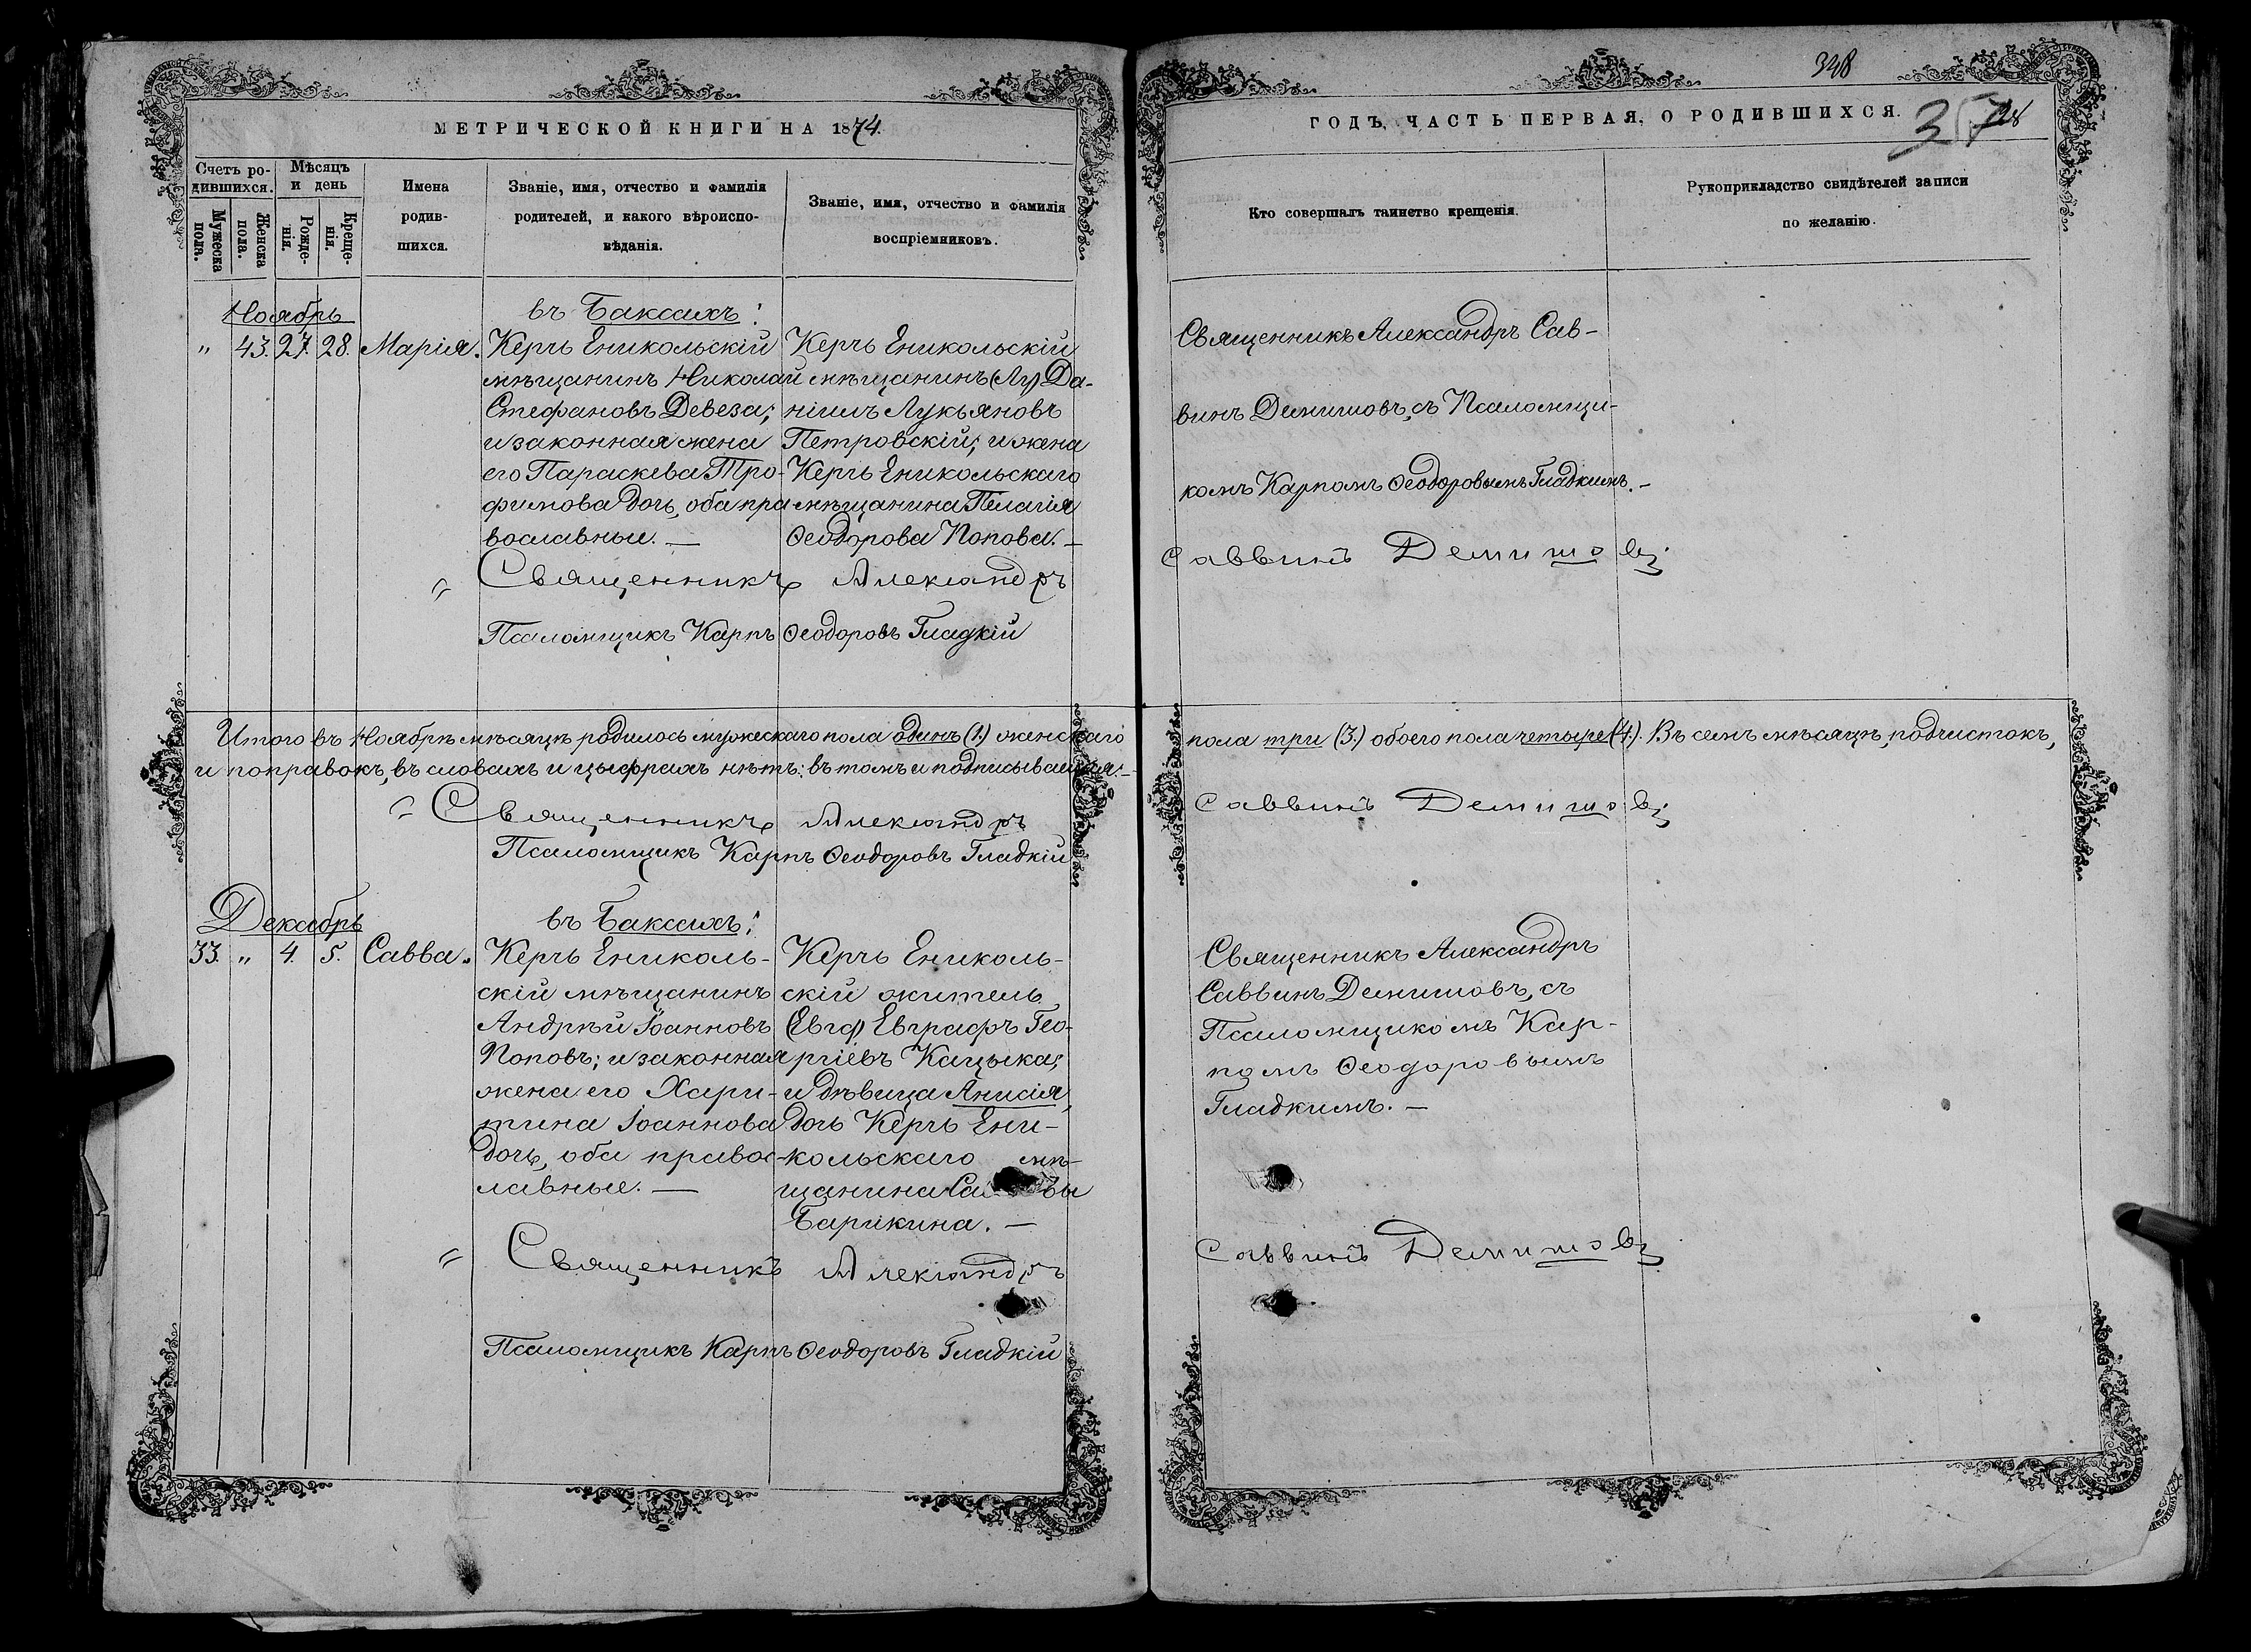 348
МЕТРИЧЕСКОЙ КНИГИ НА 1874.
ГОДЪ, ЧАСТЬ ПЕРВАЯ, О РОДИВШИХСЯ.
Счетъ ро-
дившихся.
Мужеска пола.
Женска пола.
Мѣсяцъ
и день
Рожде-
нія.
Креще-
нія.
Имена
родив-
шихся.
Званіе, имя, отчество и фамилія
родителей, и какого вѣроиспо-
вѣданія.
Званіе, имя, отчество и фамилія
воспріемниковъ.
Кто совершалъ таинство крещенія.
Рукоприкладство свидѣтелей записи
по желанію.
Ноябрь
" 43. 27. 28. Марія.
въ Баксахъ:
Керчь Еникольскій
мѣщанинъ Николай
Стефановъ Девеза;
и законная жена
его Параскева Тро-
фимова дочь, оба пра
вославные. —
Керчь Еникольскій
мѣщанинъ (Лу) Да-
ніилъ Лукьяновъ
Петровскій; и жена
Керчь Еникольскаго
мѣщанина Пелагія
Ѳеодорова Попова. —
Священникъ Александръ Сав-
винъ Демишовъ, съ Псаломщи-
комъ Карпомъ Ѳеодоровымъ Гладкимъ. —
Священникъ Александръ Саввинъ Демишовъ;
Псаломщикъ Карпъ Ѳеодоровъ Гладкій
Итого въ Ноябрѣ мѣсяцѣ родилось мужескаго пола одинъ (1.) женскаго пола три (3.) обоего пола четыре (4.). Въ семъ мѣсяцѣ, подчистокъ,
и поправокъ, въ словахъ и цыфрахъ нѣтъ: въ томъ и подписываемся: —
Священникъ Александръ Саввинъ Демишовъ;
Псаломщикъ Карпъ Ѳеодоровъ Гладкій
Декабрь
33. " 4. 5. Савва.
въ Баксахъ:
Керчь Ениколь-
скій мѣщанинъ
Андрѣй Іоанновъ
Поповъ; и законная
жена его Хари-
тина Іоаннова
дочь, оба правос-
лавные. —
Керчь Ениколь-
скій житель
(Евгф) Евграфъ Гео-
ргіевъ Кацыка;
и дѣвица Анисія,
дочь Керчь Ени-
кольскаго мѣ-
щанина
Барикина. —
Священникъ Александръ
Саввинъ Демишовъ, съ
Псаломщикомъ Кар-
помъ Ѳеодоровымъ
Гладкимъ. —
Священникъ Александръ Саввинъ Демишовъ;
Псаломщикъ Карпъ Ѳеодоровъ Гладкій